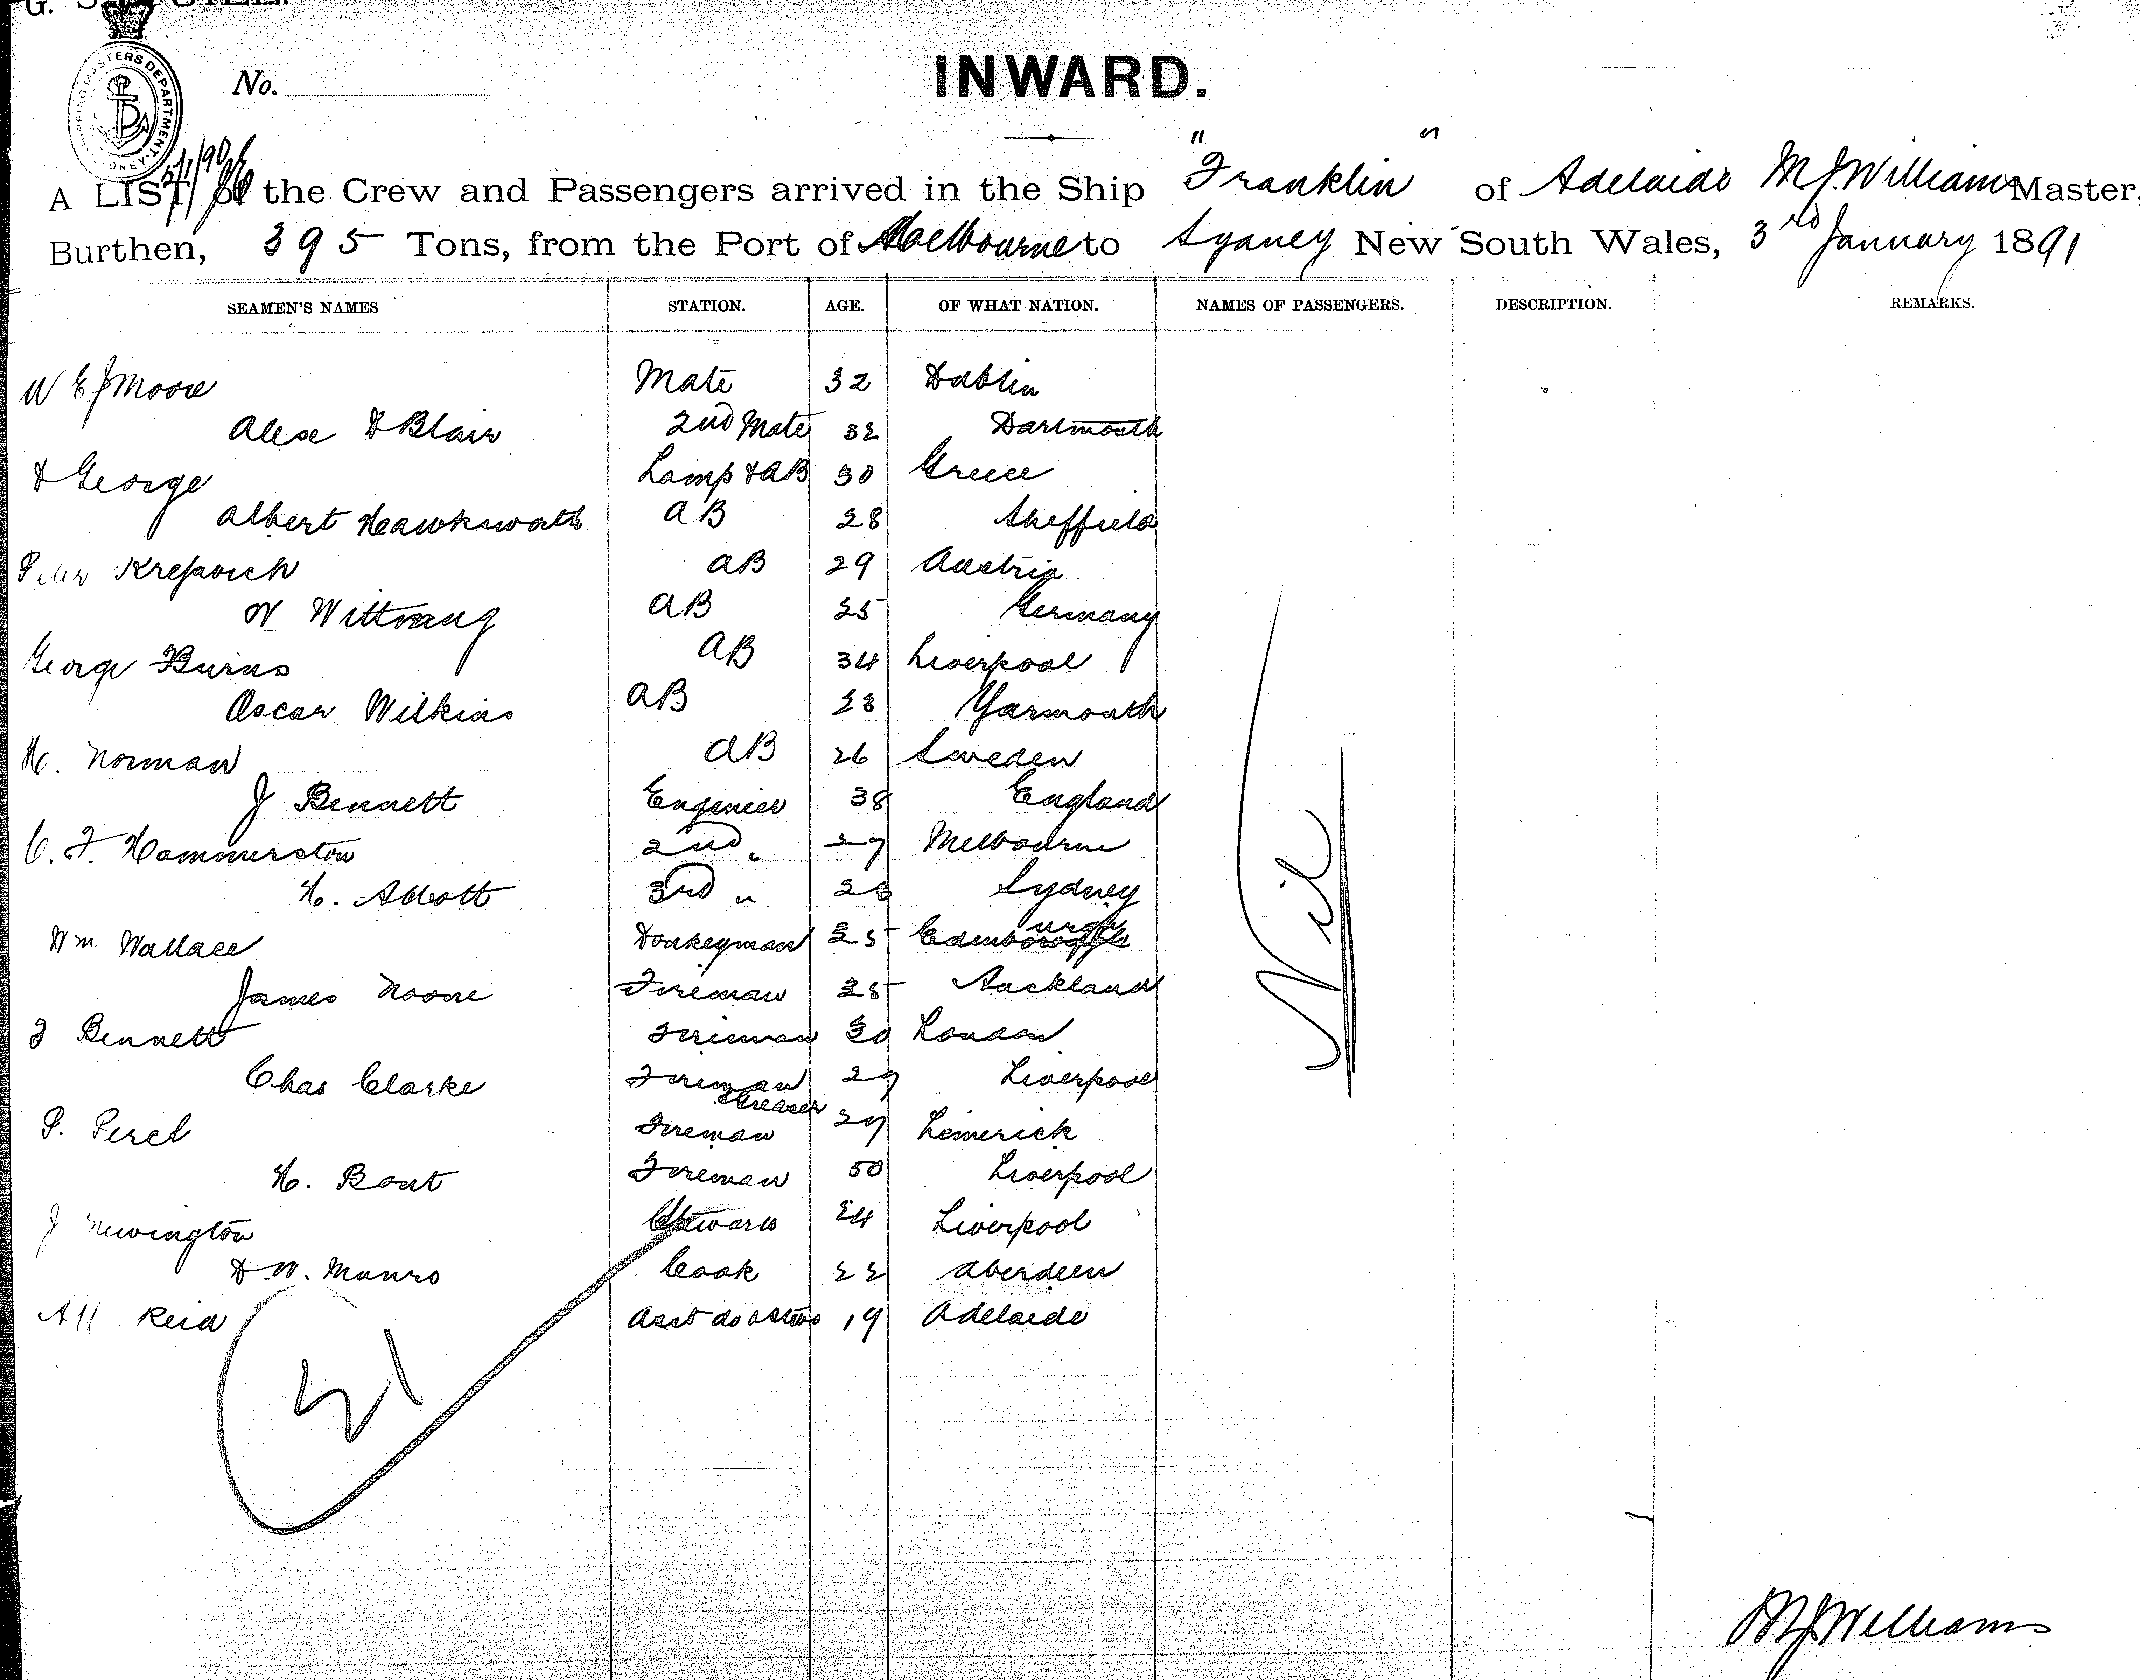 INWARD.
No.
A LIST of the Crew and Passengers arrived in the Ship "Franklin" of Adelaide M J Williams Master,
Burthen, 395 Tons, from the Port of Melbourne to Sydney New South Wales, 3rd January 1891
SEAMEN'S NAMES STATION. AGE. OF WHAT NATION. NAMES OF PASSENGERS. DESCRIPTION. REMARKS.
W E J Moore Mate 32 Dublin
Alexr D Blair 2nd Mate 32 Dartmouth
D George Lamp & AB 30 Greece
Albert Hawksworth AB 28 Sheffield
Peter AB 29 Austria
AB 25 Germany
George Burns AB 34 Liverpool
Oscar Wilkins AB 28 Yarmouth
H. Norman AB 26 Sweden
J Bennett Engenier 38 England
C. F. Hammerston 2nd " 27 Melbourne
H. Abbott 3rd " 28 Sydney
Wm Wallace Donkeyman 25 Edenburgh
James Noone Fireman 25 Auckland
J Bennett Fireman 30 London
Chas Clarke Fireman 27 Liverpool
& Greaser
P. Fireman 27 Limerick
H. Bout Fireman 50 Liverpool
J Newington Steward 24 Liverpool
D W. Munro Cook 22 Aberdeen
A H Reid Asst do & Stwd 19 Adelaide
Nil
21
M J Williams